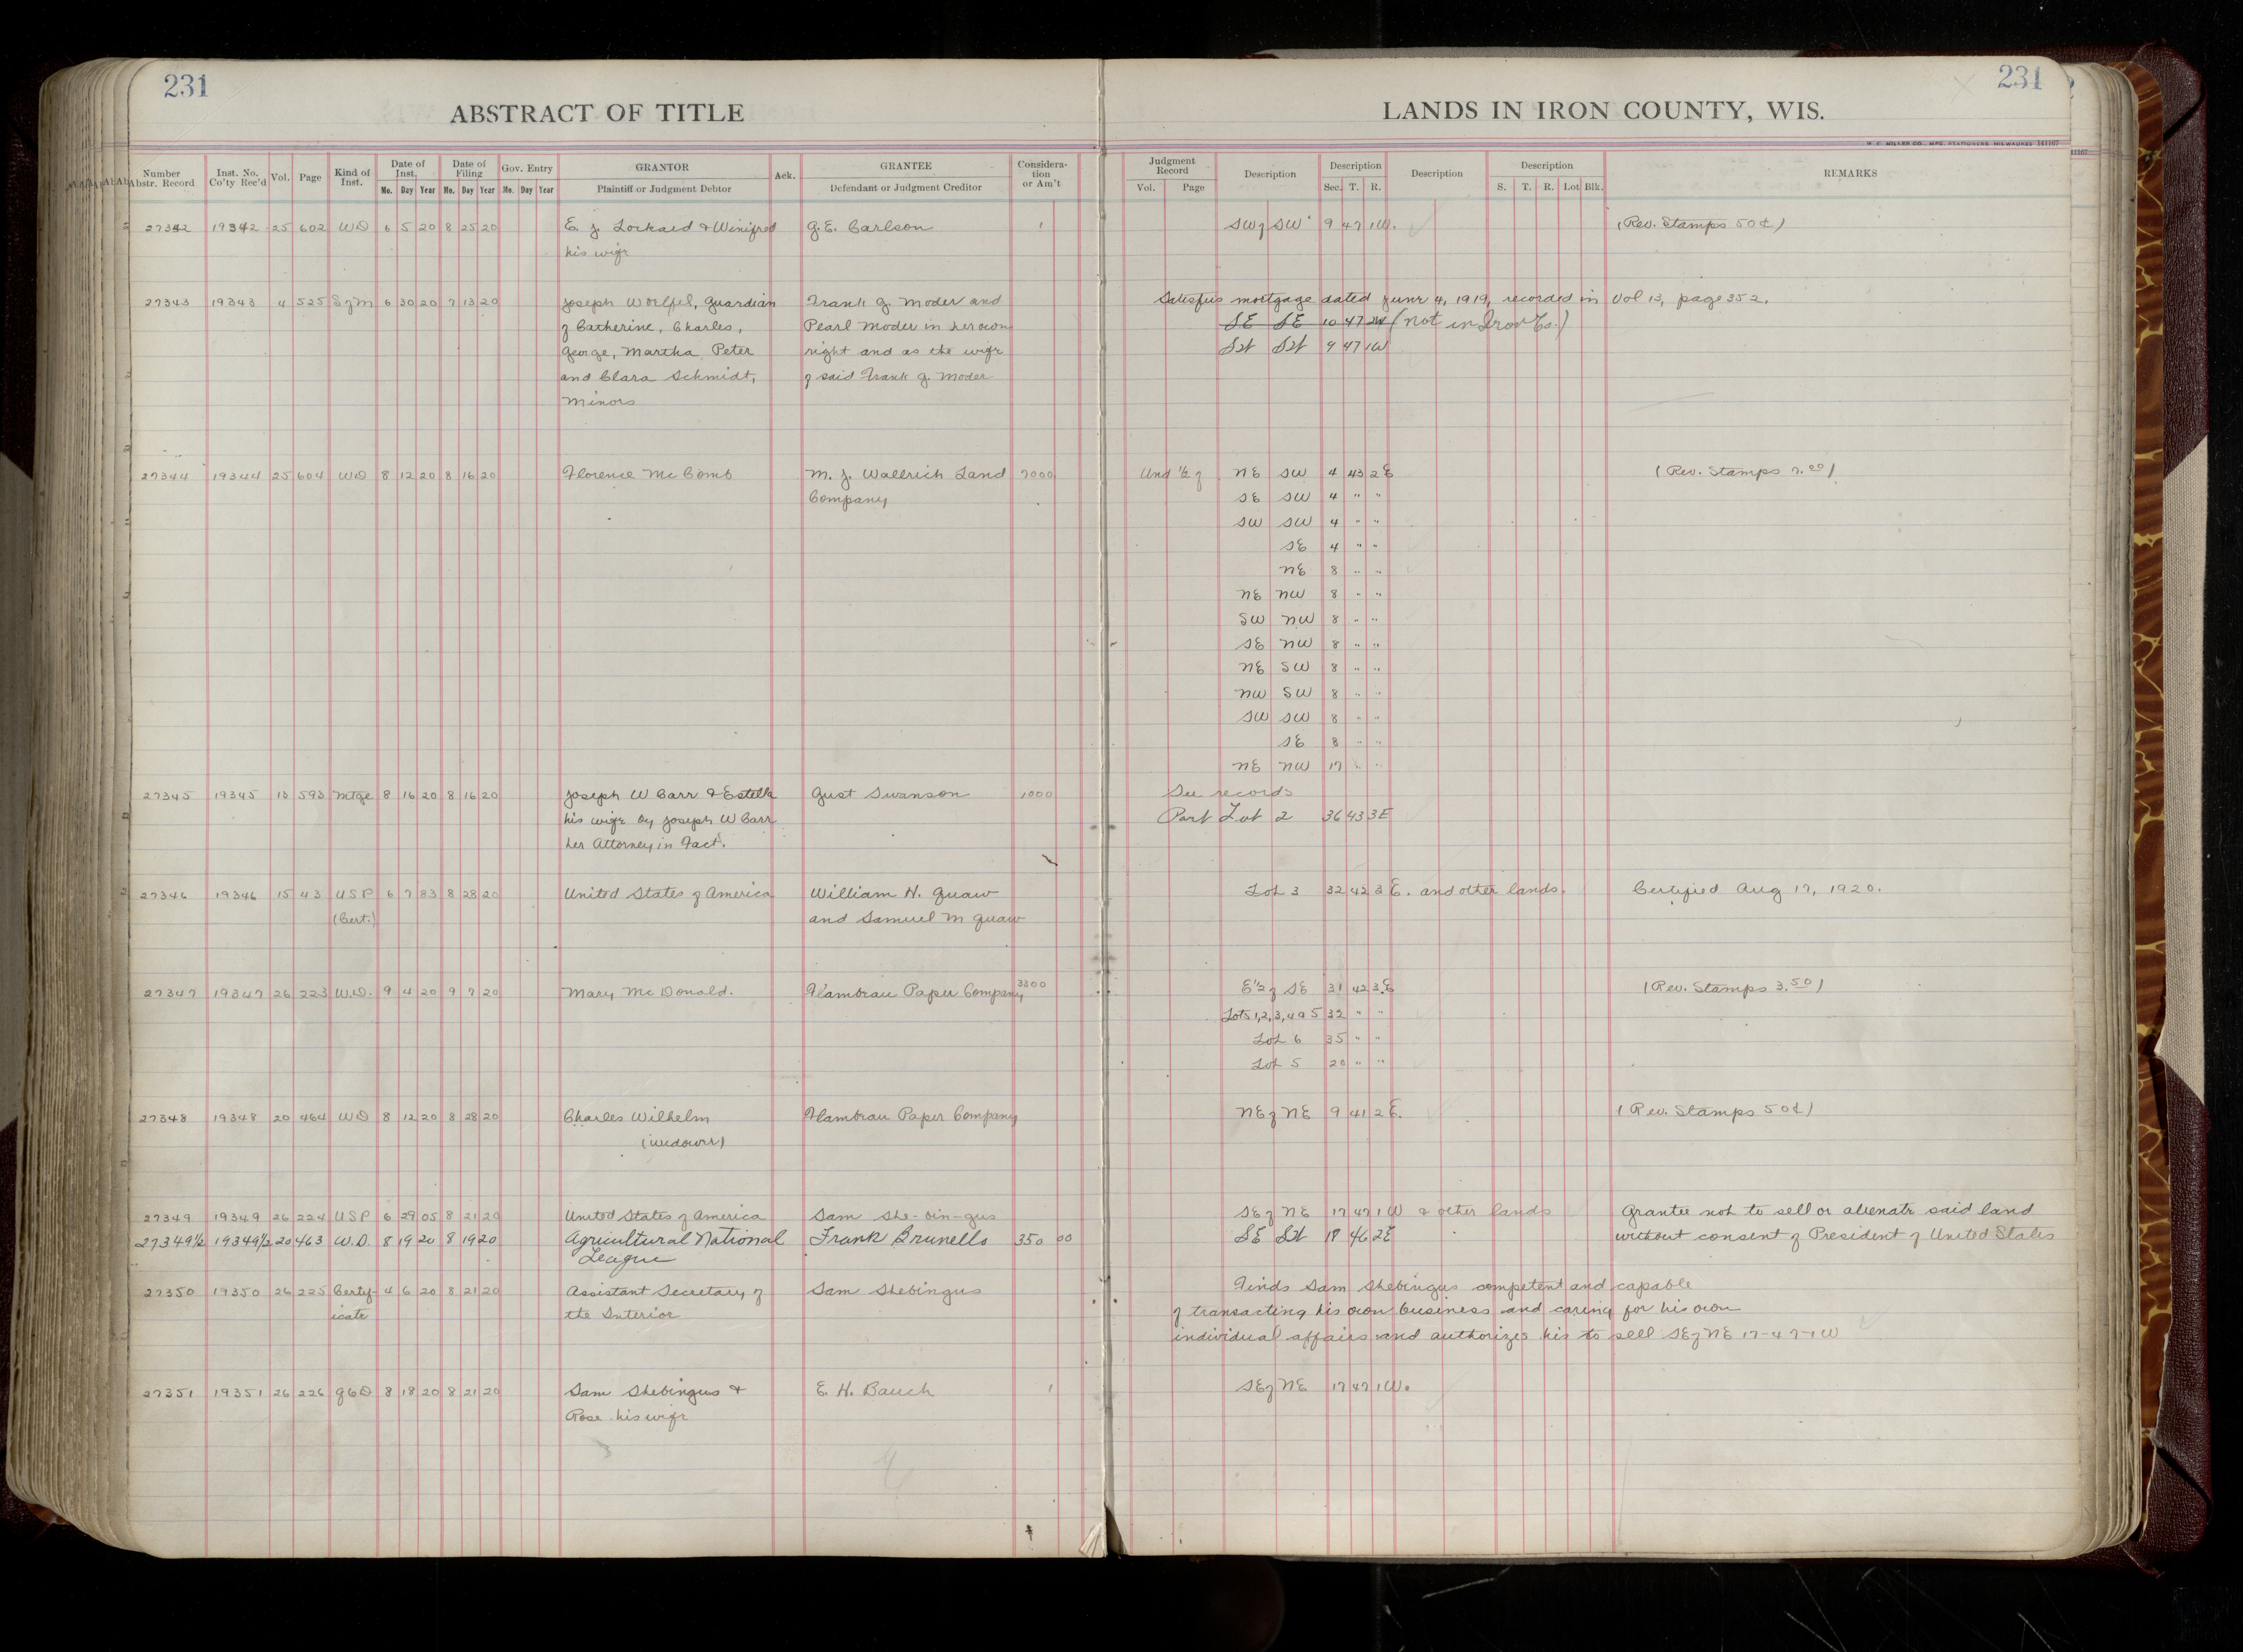 231
231
ABSTRACT OF TITLE
LANDS IN IRON COUNTY, WIS.
Number Abstr. Record | Inst. No. Co'ty Rec'd | Vol. | Page | Kind of Inst. | Date of Inst. Mo. Day Year | Date of Filing Mo. Day Year | Gov. Entry Mo. Day Year | GRANTOR Plaintiff or Judgment Debtor | Ack. | GRANTEE Defendant or Judgment Creditor | Considera-tion or Am't | Judgment Record Vol. Page | Description | Description Sec. T. R. | Description | Description S. T. R. Lot Blk. | REMARKS
27342 19342 25 602 WD 6 5 20 8 25 20 E. J. Lockard & Winifred G. E. Carlson 1 SW of SW 9 47 1W. (Rev. Stamps 50¢)
his wife
27343 19343 4 525 S of M 6 30 20 7 13 20 Joseph Woelfel, Guardian Frank G. Moder and Satisfies mortgage dated June 4, 1919, recorded in Vol 13, page 352.
of Catherine, Charles, Pearl Moder in her own SE SE 10 47 2W (Not in Iron Co.)
George, Martha, Peter right and as the wife SW SW 9 47 1W
and Clara Schmidt, of said Frank G. Moder
Minors
27344 19344 25 604 WD 8 12 20 8 16 20 Florence McComb M. J. Wallrich Land 7000 Und 1/2 of NE SW 4 43 2E (Rev. Stamps 7.00)
Company SE SW 4 " "
SW SW 4 " "
SE 4 " "
NE 8 " "
NE NW 8 " "
SW NW 8 " "
SE NW 8 " "
NE SW 8 " "
NW SW 8 " "
SW SW 8 " "
SE 8 " "
NE NW 17 " "
27345 19345 13 593 Mtge 8 16 20 8 16 20 Joseph W Carr & Estella Gust Swanson 1000 See records
his wife by Joseph W Carr Part Lot 2 36 43 3E
her Attorney in Fact.
27346 19346 15 43 USP 6 7 83 8 28 20 United States of America William H. Guaw Lot 3 32 42 3 E. and other lands. Certified Aug 17, 1920.
(Cert.) and Samuel M Guaw
27347 19347 26 223 W.D. 9 4 20 9 7 20 Mary McDonald. Flambeau Paper Company 3300 E1/2 of SE 31 42 3E (Rev. Stamps 3.50)
Lots 1,2,3,4 & 5 32 " "
Lot 6 35 " "
Lot 5 20 " "
27348 19348 20 464 WD 8 12 20 8 28 20 Charles Wilhelm Flambeau Paper Company NE of NE 9 41 2 E. (Rev. Stamps 50¢)
(widower)
27349 19349 26 224 USP 6 29 05 8 21 20 United States of America Sam She-bin-gus SE of NE 17 47 1W & other lands Grantee not to sell or alienate said land
27349½ 19349½ 20 463 W.D. 8 19 20 8 19 20 Agricultural National Frank Brunello 350 00 SE SW 18 46 2E without consent of President of United States
League
27350 19350 26 225 Certif- 4 6 20 8 21 20 Assistant Secretary of Sam Shebingus Finds Sam Shebingus competent and capable
icate the Interior of transacting his own business and caring for his own
individual affairs and authorizes his to sell SE of NE 17-47-1W
27351 19351 26 226 8 18 20 8 21 20 Sam Shebingus & E. H. Bauch 1 SE of NE 17 47 1W.
Rose his wife